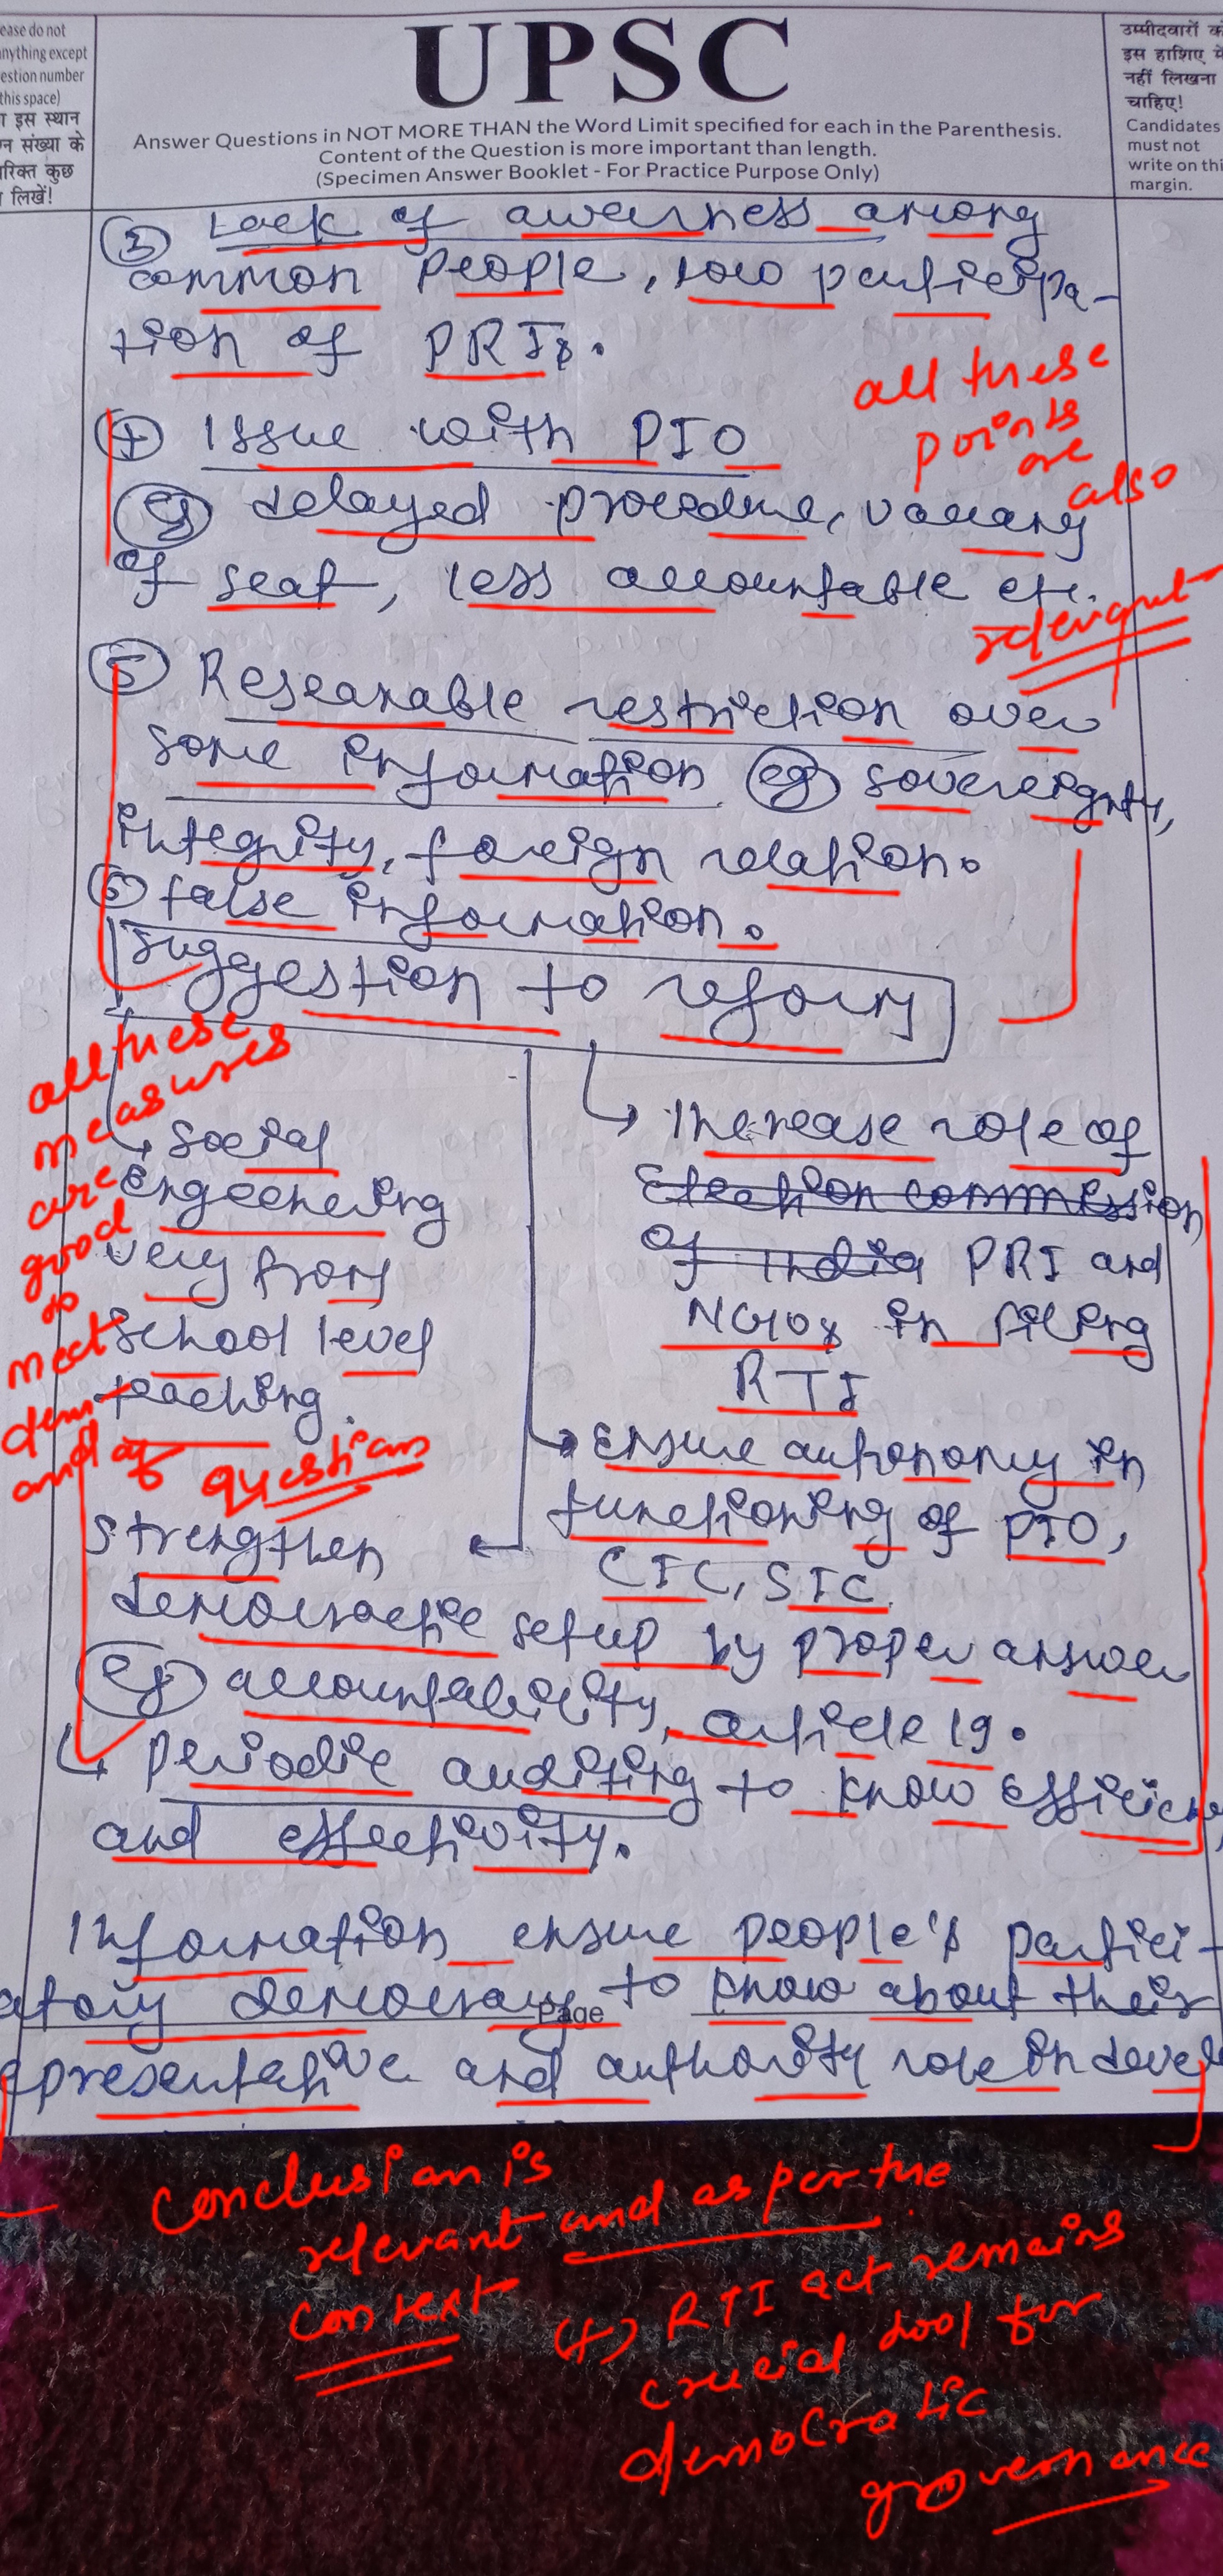 ease do not
nything except
estion number
this space)
ा इस स्थान
न संख्या के
रिक्त कुछ
लिखें!
UPSC
Answer Questions in NOT MORE THAN the Word Limit specified for each in the Parenthesis.
Content of the Question is more important than length.
(Specimen Answer Booklet - For Practice Purpose Only)
उम्मीदवारों क
इस हाशिए में
नहीं लिखना
चाहिए!
Candidates
must not
write on thi
margin.
③ Lack of awerness among
common people, low participa-
tion of PRIs.
all these
points
are
also
relevant
④ Issue with PIO
eg delayed procedure, vacany
of seat, less accountable etc.
⑤ Resenable restriction over
some information eg sovereignty,
integrity, foreign relation.
⑥ false information.
Suggestion to reform
all these
measures
are
good
to
meet
demand of
questions
↳ Social
Engeenering
very from
school level
teaching.
↳ Increase role of
Election commission
of India PRI and
NGOs in filing
RTI
→ Ensure autonomy in
functioning of PIO,
CIC, SIC.
Strengthen
democractic setup by proper answer
eg accountability, article 19.
↳ Periodic auditing to know efficienc
and effectivity.
Information ensure people's partici-
atory democracy to know about their
Page
epresentative and authority role in devel
Conclusion is
relevant and as per the
context
(+) RTI act remains
crucial tool for
democratic
governance